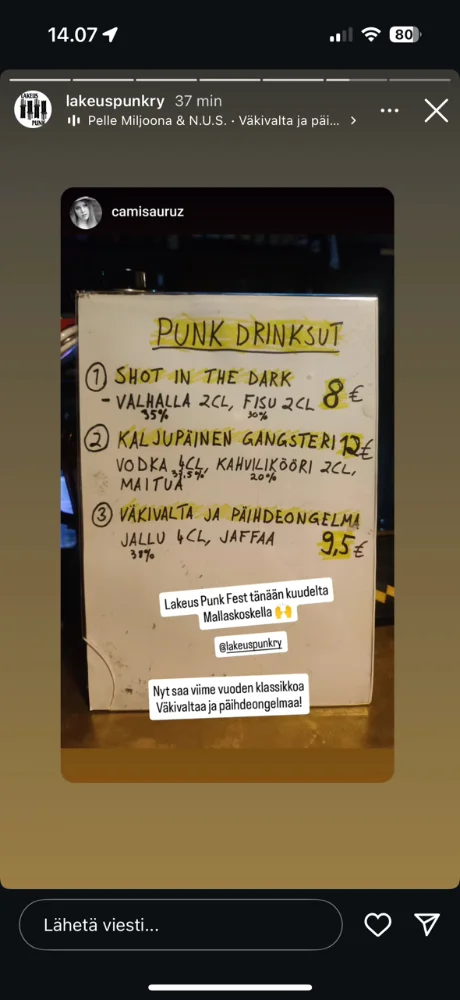 14.07
80
LAKEUS
PUNK
lakeuspunkry 37 min
Pelle Miljoona & N.U.S. · Väkivalta ja päi...
camisauruz
PUNK DRINKSUT
1 SHOT IN THE DARK 8€
- VALHALLA 2CL, FISU 2CL
35% 30%
2 KALJUPÄINEN GANGSTERI 12€
VODKA 4CL, KAHVILIKÖÖRI 2CL,
37.5% 20%
MAITUA
3 VÄKIVALTA JA PÄIHDEONGELMA
JALLU 4CL, JAFFAA 9,5€
38%
Lakeus Punk Fest tänään kuudelta
Mallaskoskella 🙌
@lakeuspunkry
Nyt saa viime vuoden klassikkoa
Väkivaltaa ja päihdeongelmaa!
Lähetä viesti...